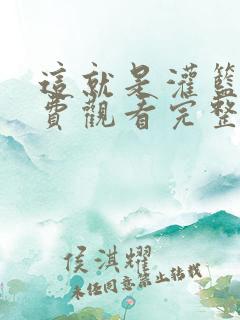 這就是灌籃
費觀看完整
侯淇耀
未经同意禁止转载